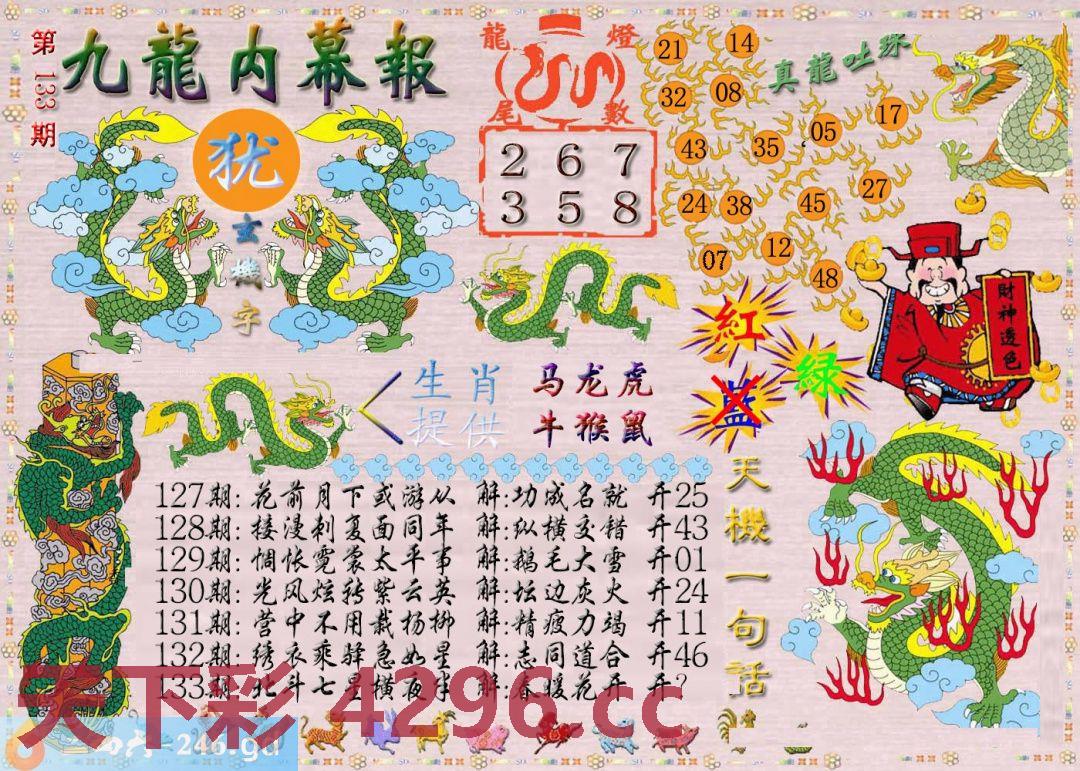 第133期
九龍内幕報
犹
玄機字
龍燈
尾數
2 6 7
3 5 8
真龍吐珠
21 14
32 08
43 35 05 17
24 38 45 27
07 12 48
財神透色
紅
藍
綠
生肖
提供
马龙虎
牛猴鼠
天機一句话
127期: 花前月下或游从 解:功成名就 开25
128期: 接浸刺复面同年 解:纵横交错 开43
129期: 惆怅霓裳太平事 解:鹅毛大雪 开01
130期: 光风炫转紫云英 解:坛边灰火 开24
131期: 营中不用栽杨柳 解:精疲力竭 开11
132期: 绣衣乘驿急如星 解:志同道合 开46
133期: 北斗七星横夜半 解:春暖花开 开?
天下彩 4296.cc
246.gd